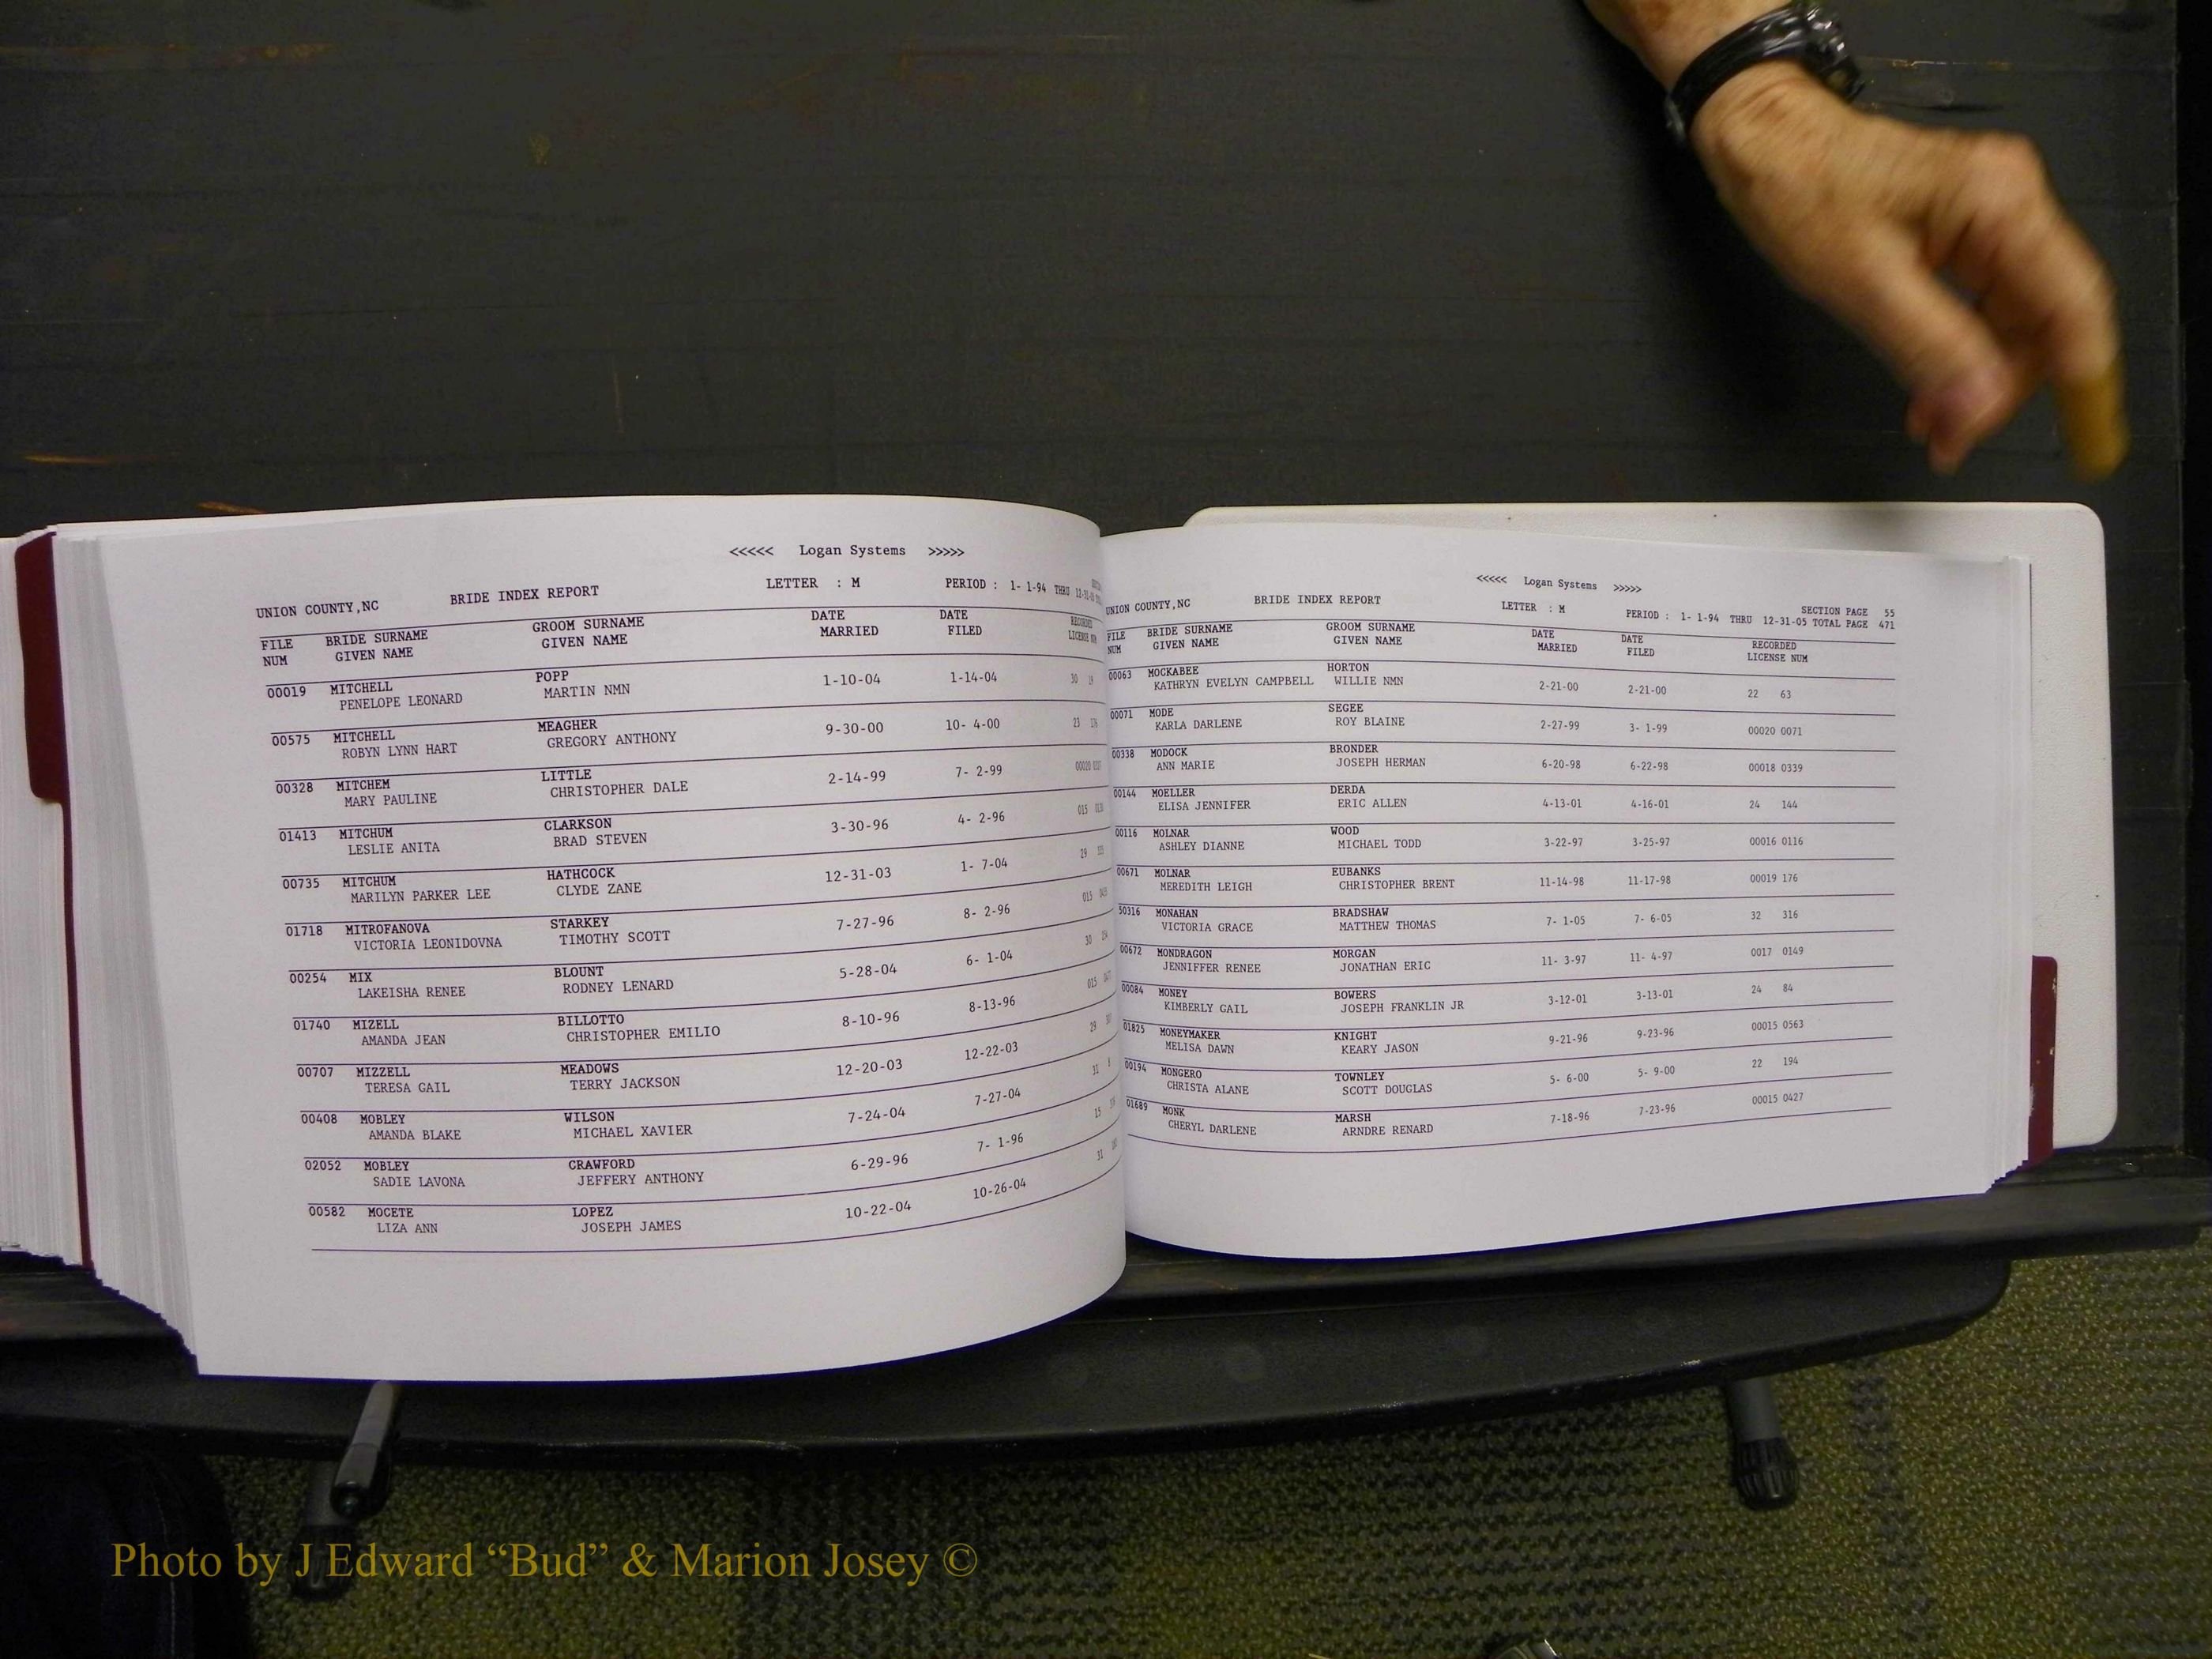 <<<<< Logan Systems >>>>>
UNION COUNTY,NC BRIDE INDEX REPORT LETTER : M PERIOD : 1- 1-94 THRU
FILE BRIDE SURNAME GROOM SURNAME DATE DATE RECORDED
NUM GIVEN NAME GIVEN NAME MARRIED FILED LICENSE NUM
00019 MITCHELL POPP 1-10-04 1-14-04
PENELOPE LEONARD MARTIN NMN
00575 MITCHELL MEAGHER 9-30-00 10- 4-00
ROBYN LYNN HART GREGORY ANTHONY
00328 MITCHEM LITTLE 2-14-99 7- 2-99
MARY PAULINE CHRISTOPHER DALE
01413 MITCHUM CLARKSON 3-30-96 4- 2-96
LESLIE ANITA BRAD STEVEN
00735 MITCHUM HATHCOCK 12-31-03 1- 7-04
MARILYN PARKER LEE CLYDE ZANE
01718 MITROFANOVA STARKEY 7-27-96 8- 2-96
VICTORIA LEONIDOVNA TIMOTHY SCOTT
00254 MIX BLOUNT 5-28-04 6- 1-04
LAKEISHA RENEE RODNEY LENARD
01740 MIZELL BILLOTTO 8-10-96 8-13-96
AMANDA JEAN CHRISTOPHER EMILIO
00707 MIZZELL MEADOWS 12-20-03 12-22-03
TERESA GAIL TERRY JACKSON
00408 MOBLEY WILSON 7-24-04 7-27-04
AMANDA BLAKE MICHAEL XAVIER
02052 MOBLEY CRAWFORD 6-29-96 7- 1-96
SADIE LAVONA JEFFERY ANTHONY
00582 MOCETE LOPEZ 10-22-04 10-26-04
LIZA ANN JOSEPH JAMES
<<<<< Logan Systems >>>>>
SECTION PAGE 55
UNION COUNTY,NC BRIDE INDEX REPORT LETTER : M PERIOD : 1- 1-94 THRU 12-31-05 TOTAL PAGE 471
FILE BRIDE SURNAME GROOM SURNAME DATE DATE RECORDED
NUM GIVEN NAME GIVEN NAME MARRIED FILED LICENSE NUM
00063 MOCKABEE HORTON 2-21-00 2-21-00 22 63
KATHRYN EVELYN CAMPBELL WILLIE NMN
00071 MODE SEGEE 2-27-99 3- 1-99 00020 0071
KARLA DARLENE ROY BLAINE
00338 MODOCK BRONDER 6-20-98 6-22-98 00018 0339
ANN MARIE JOSEPH HERMAN
00144 MOELLER DERDA 4-13-01 4-16-01 24 144
ELISA JENNIFER ERIC ALLEN
00116 MOLNAR WOOD 3-22-97 3-25-97 00016 0116
ASHLEY DIANNE MICHAEL TODD
00671 MOLNAR EUBANKS 11-14-98 11-17-98 00019 176
MEREDITH LEIGH CHRISTOPHER BRENT
50316 MONAHAN BRADSHAW 7- 1-05 7- 6-05 32 316
VICTORIA GRACE MATTHEW THOMAS
00672 MONDRAGON MORGAN 11- 3-97 11- 4-97 0017 0149
JENNIFFER RENEE JONATHAN ERIC
00084 MONEY BOWERS 3-12-01 3-13-01 24 84
KIMBERLY GAIL JOSEPH FRANKLIN JR
01825 MONEYMAKER KNIGHT 9-21-96 9-23-96 00015 0563
MELISA DAWN KEARY JASON
00194 MONGERO TOWNLEY 5- 6-00 5- 9-00 22 194
CHRISTA ALANE SCOTT DOUGLAS
01689 MONK MARSH 7-18-96 7-23-96 00015 0427
CHERYL DARLENE ARNDRE RENARD
Photo by J Edward “Bud” & Marion Josey ©